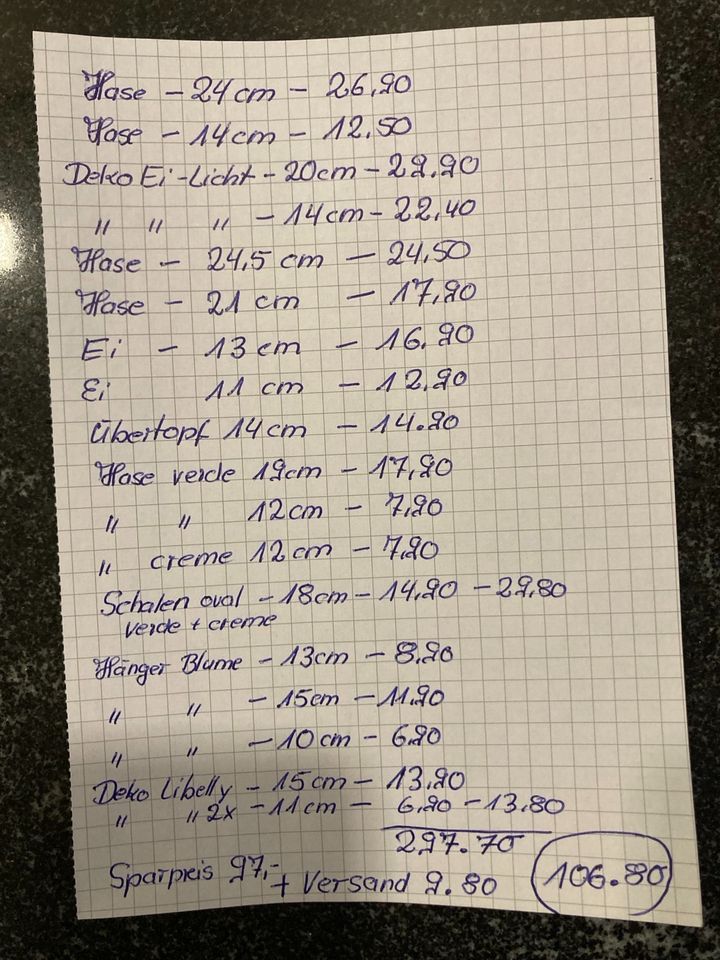 Hase - 24cm - 26,90
Hase - 14cm - 12.50
Deko Ei-Licht - 20cm - 29.90
" " " - 14cm - 22,40
Hase - 24,5 cm - 24,50
Hase - 21 cm - 17,90
Ei - 13 cm - 16.90
Ei 11 cm - 12,90
Übertopf 14cm - 14.90
Hase verde 19cm - 17,90
" " 12cm - 7,90
" creme 12cm - 7,90
Schalen oval - 18cm - 14,90 - 29,80
verde + creme
Hänger Blume - 13cm - 8,90
" " - 15cm - 11,90
" " - 10cm - 6,90
Deko Libelly - 15cm - 13,90
" " 2x - 11cm - 6,90 - 13,80
297.70
Sparpreis 97,- + Versand 9.80 106.80